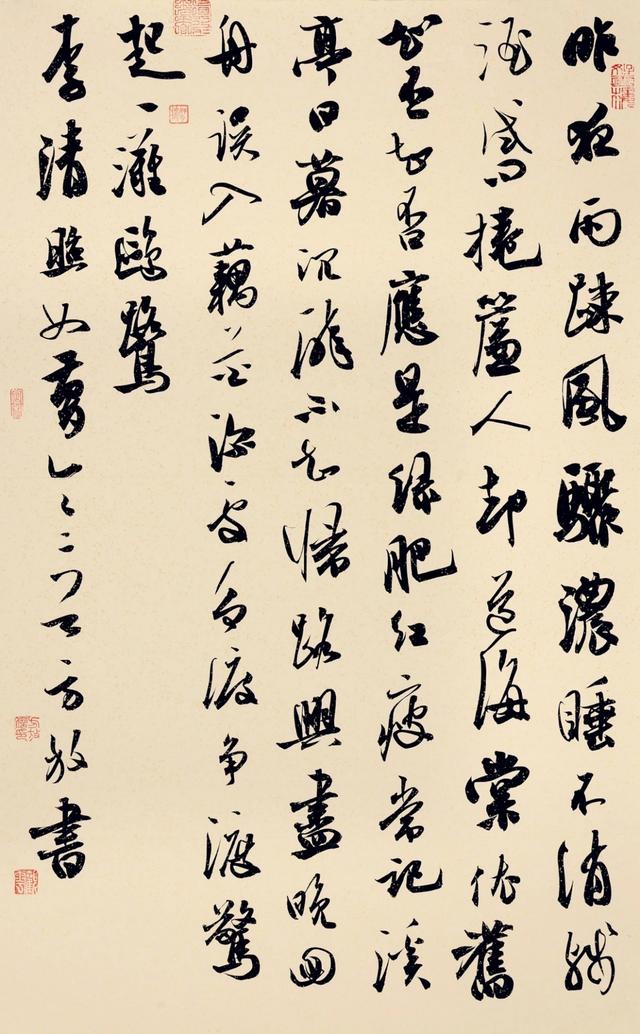 昨夜雨疎風驟濃睡不消殘
酒試問捲簾人却道海棠依舊
知否知否應是緑肥紅瘦常記溪
亭日暮沉醉不知歸路興盡晚回
舟誤入藕花深處争渡争渡驚
起一灘鷗鷺
李清照如夢 方放書